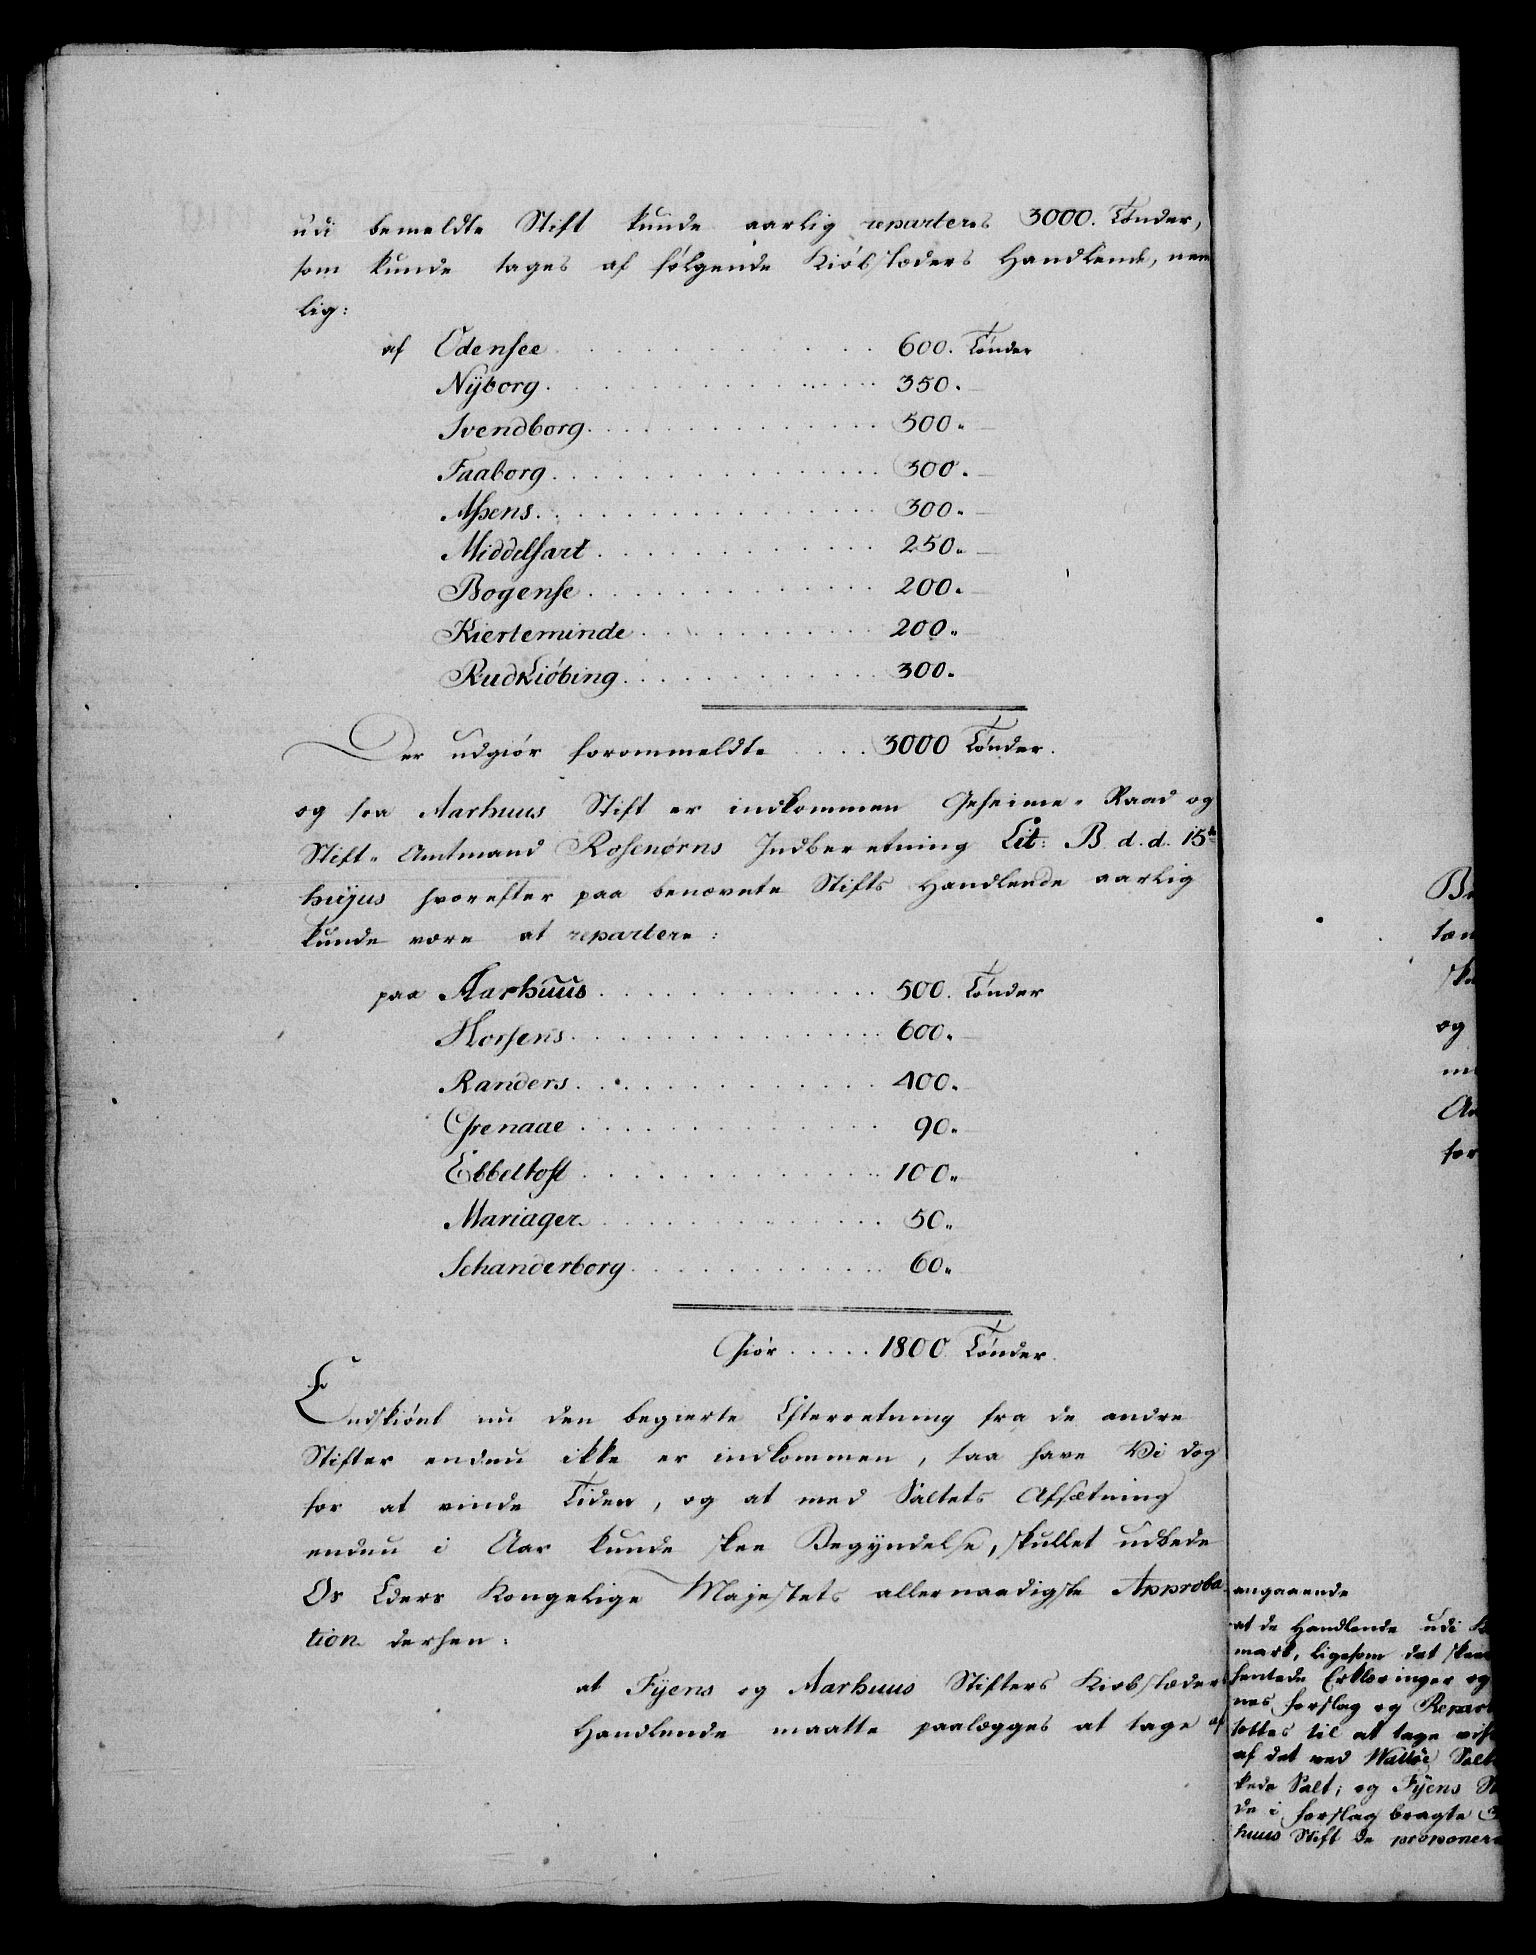 udi bemeldte Stift kunde aarlig reparteres 3000. Tønder,
som kunde tages af følgende Kiøbstæders Handlende, nem
lig:
af Odensee . . . . . . . . . . . 600. Tønder
Nÿborg . . . . . . . . . . . 350. —
Svendborg . . . . . . . . . . . 500. —
Faaborg . . . . . . . . . . . 300. —
Assens . . . . . . . . . . . 300. —
Middelfart . . . . . . . . . . . 250. —
Bogense . . . . . . . . . . . 200. —
Kierteminde . . . . . . . . . . . 200. —
Rudkiøbing . . . . . . . . . . . 300.
Der udgiør forommeldte . . . . 3000 Tønder.
og fra Aarhuus Stift er indkommen Geheime-Raad og
Stift-Amtmand Rosenørns Indberetning Lit: B d. d. 15de
hujus hvorefter paa benævnte Stifts Handlende aarlig
kunde være at repartere:
paa Aarhuus . . . . . . . . . . . 500. Tønder
Horsens . . . . . . . . . . . 600. —
Randers . . . . . . . . . . . 400. —
Grenaae . . . . . . . . . . . 90. —
Ebbeltoft . . . . . . . . . . . 100. —
Mariager . . . . . . . . . . . 50. —
Schanderborg . . . . . . . . . . . 60. —
Giør . . . . . 1800 Tønder.
Endskiønt nu den begierte Efterretning fra de andre
Stifter endnu ikke er indkommen, saa have Vi dog
for at vinde Tiden, og at med Saltets Afsætning
endnu i Aar kunde skee Begyndelse, skullet udbede
Os Eders Kongelige Majestets allernaadigste Approba
tion derhen:
at Fÿens og Aarhuus Stifters Kiøbstæders
Handlende maatte paalægges at tage af
og
angaaende
at de Handlende udi
mark, ligesom det
hentede Erklæringer og
nes forslag og
sættes til at tage
af det ved Walløe
kede Salt; og Fÿens
de i forslag bragte
huus Stift de